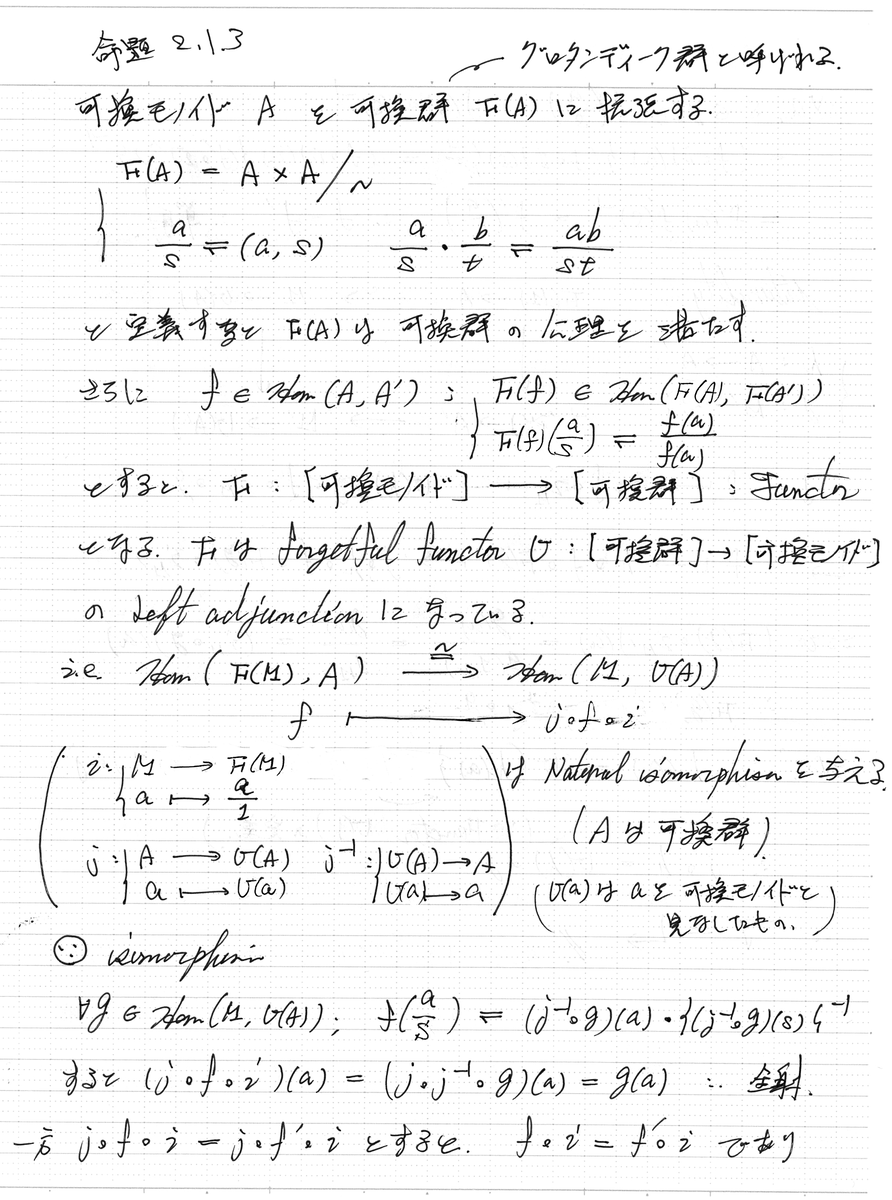 命題 2.1.3
グロタンディーク群と呼ばれる.
可換モノイド A を 可換群 F(A) に 拡張する.
F(A) = A × A / ~
a/s ≒ (a, s)  a/s · b/t ≒ ab/st
と 定義すると F(A) は 可換群 の 公理を 満たす.
さらに f ∈ Hom(A, A') ; F(f) ∈ Hom(F(A), F(A'))
F(f)(a/s) ≒ f(a)/f(a)
とすると. F : [可換モノイド] → [可換群] : functor
となる. F は forgetful functor U : [可換群] → [可換モノイド]
の left adjunction に なっている.
i.e. Hom(F(M), A) ≅→ Hom(M, U(A))
f ↦ j∘f∘i
i : M → F(M)
a ↦ a/1
は Natural isomorphism を 与える.
(A は 可換群)
j : A → U(A)  j⁻¹ : U(A) → A
a ↦ U(a)  U(a) ↦ a
(U(a) は a を 可換モノイドと
見なしたもの.)
∵ isomorphism
∀g ∈ Hom(M, U(A)); f(a/s) ≒ (j⁻¹∘g)(a)·{(j⁻¹∘g)(s)}⁻¹
すると (j∘f∘i)(a) = (j∘j⁻¹∘g)(a) = g(a) ∴ 全射.
一方 j∘f∘i = j∘f'∘i とすると. f∘i = f'∘i であり